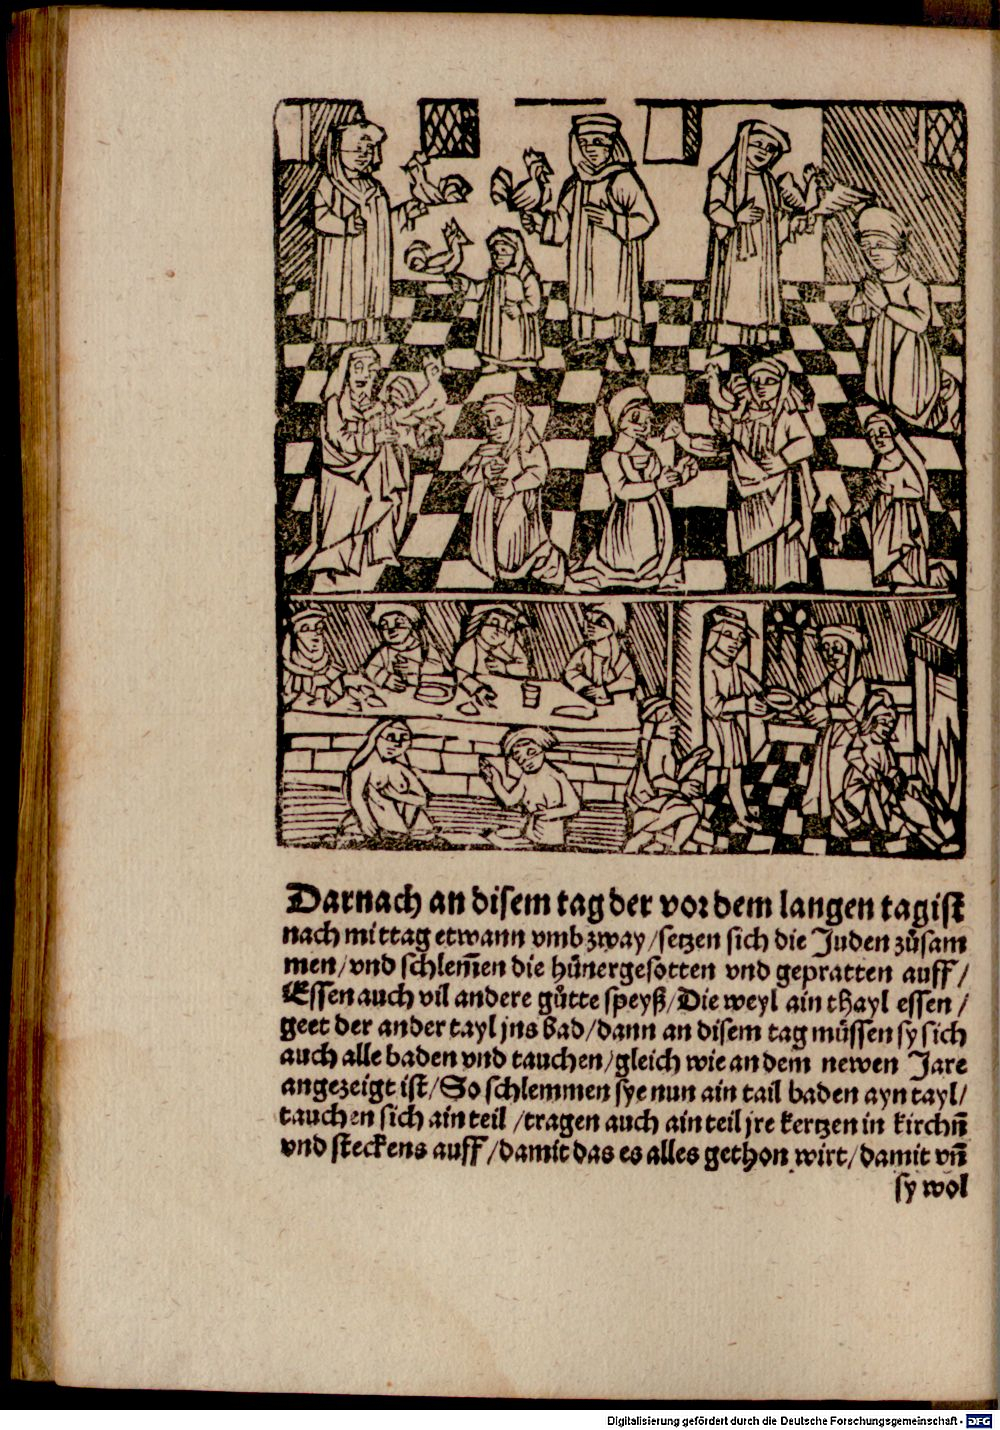 Darnach an disem tag der vor dem langen tag ist
nach mittag etwann vmb zway / setzen sich die Juden zůsam
men / vnd schlem̄en die hůnergesotten vnd gepratten auff /
Essen auch vil andere gůtte speyß / Die weyl ain thayl essen /
geet der ander tayl jns bad / dann an disem tag můssen sy sich
auch alle baden vnd tauchen / gleich wie an dem newen Jare
angezeigt ist / So schlemmen sye nun ain tail baden ayn tayl /
tauchen sich ain teil / tragen auch ain teil jre kertzen in kirchn̄
vnd steckens auff / damit das es alles gethon wirt / damit vn̄
sy wol
Digitalisierung gefördert durch die Deutsche Forschungsgemeinschaft - DFG